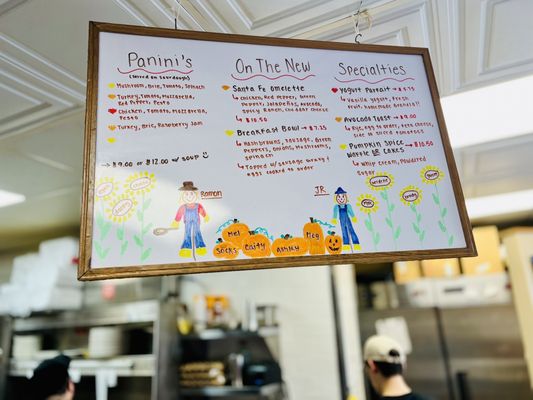 Panini's
(Served on Sourdough)
Mushroom, Brie, Tomato, Spinach
Turkey, Tomato, Mozzarella,
Red Pepper, Pesto
Chicken, Tomato, Mozzarella,
Pesto
Turkey, Brie, Raspberry Jam
$9.00 or $12.00 w/ soup
On The New
Santa Fe Omelette
Chicken, Red Pepper, Green
Pepper, Jalapeños, Avocado,
Spicy Ranch
$10.50
Breakfast Bowl → $7.75
Hashbrowns, Sausage, Green
Peppers, Onions, Mushrooms,
Spinach
Topped w/ Sausage Gravy &
eggs cooked to order
Specialties
Yogurt Parfait → $8.75
Vanilla yogurt, Fresh
Fruit, homemade Granola!!
Avocado Toast → $9.00
Rye, egg
side of sliced tomatoes
Pumpkin Spice → $10.50
Waffle or Cakes
Whip Cream, Powdered
Sugar
Ramen
JR.
Mel
Cathy
Ashley
Meg
Socks